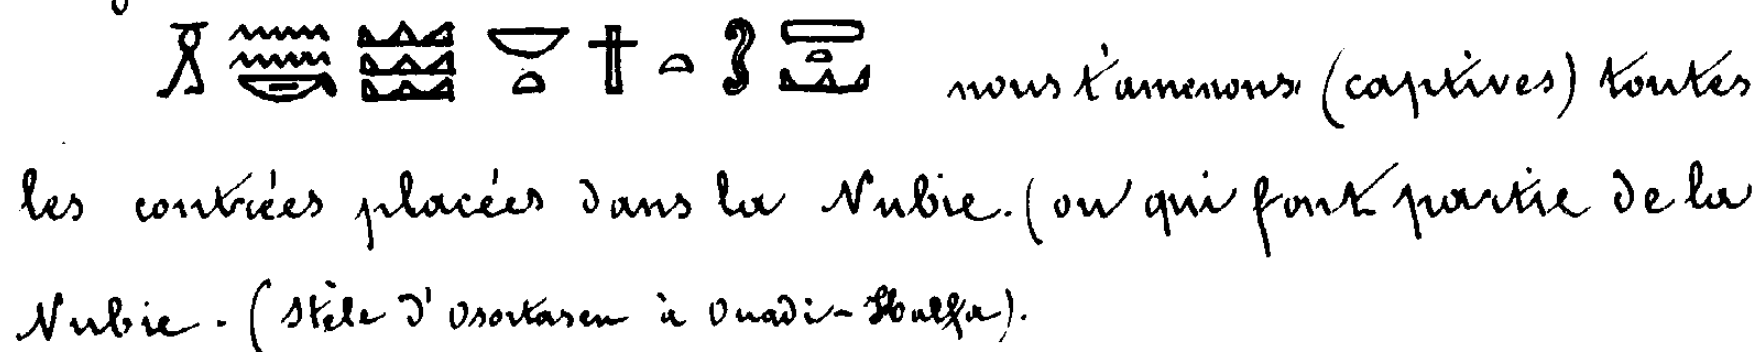 𓏎𓈖𓈖𓎡𓈉𓈉𓈉𓎟𓏏𓏶𓏏𓇿𓏏𓈉 nous t'amenons (captives) toutes
les contrées placées dans la Nubie. (ou qui font partie de la
Nubie. (Stèle d'Osortasen à Ouadi-Halfa).